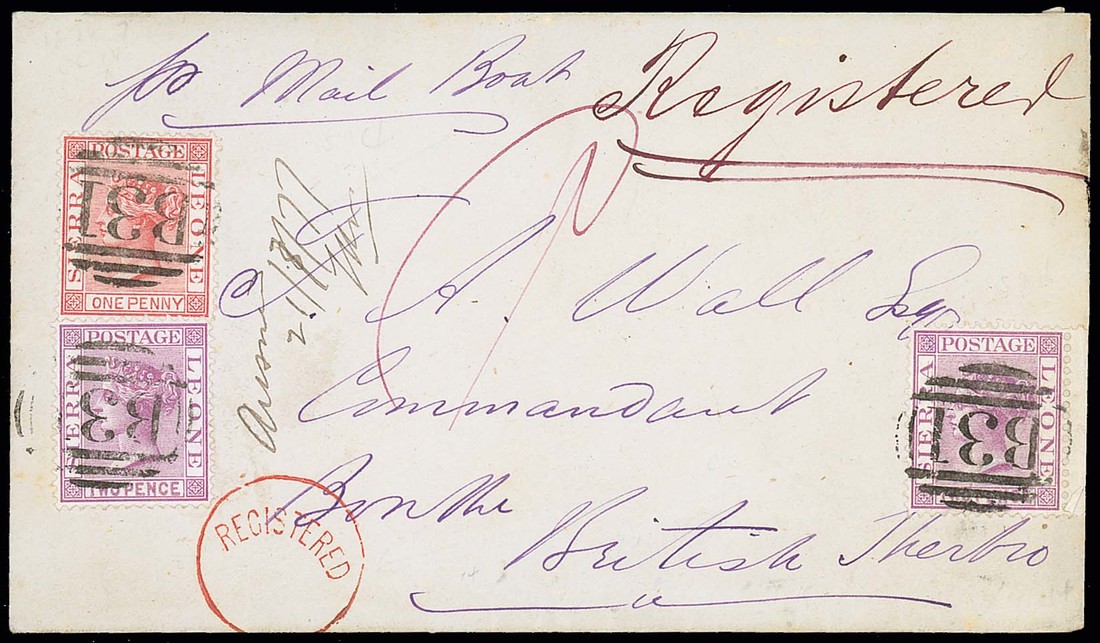 per Mail Boat
Registered
POSTAGE
SIERRA
LEONE
ONE PENNY
B31
POSTAGE
SIERRA
LEONE
TWO PENCE
B31
A. Wall Esqr
Commandant
Bonthe
British Sherbro
POSTAGE
SIERRA
LEONE
B31
REGISTERED